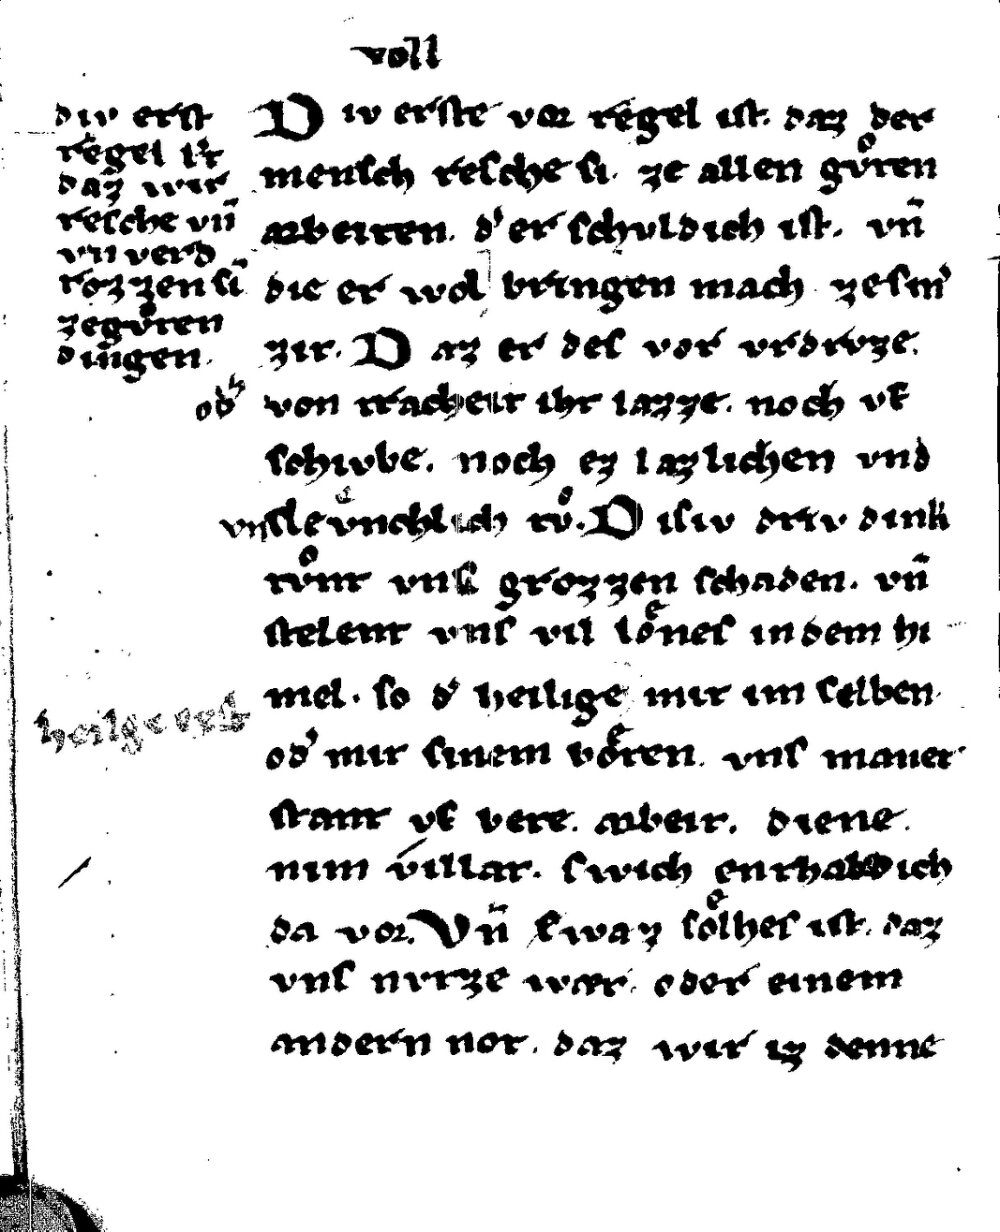 voll
div erst
regel ist
daz wir
resche vñ
vnverd
rozzen sī
ze gůten
dingen.
Div erste vor regel ist. daz der
mensch resche si. ze allen gůten
arbeiten. d' er schvldich ist. vñ
die er wol bringen mach ze sin'
zit. Daz er des vor vrdrvze.
od'
von tracheit iht lazze. noch vf
schivbe. noch ez lazlichen vnd
vnflevnchlich tů. Disiv driv dink
tůnt vns grozzen schaden. vñ
stelent vns vil lͤones in dem hi
mel. so d' heilige mit im selben
heilge
od' mit sinem bͤoten. vns manet
stant vf bete. arbeit. diene.
nim villat. swich enthab dich
da vor. Vñ swaz sͤolhes ist. daz
vns nvtze wær. oder einem
andern not. daz wir iz denne